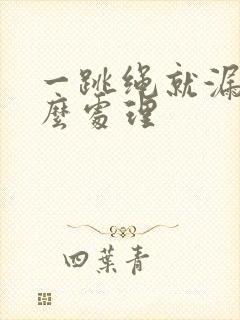 一跳绳就漏
麼處理
四葉青